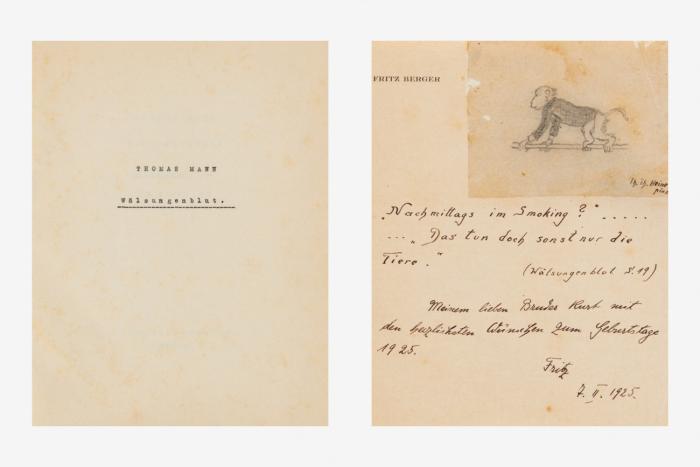 THOMAS MANN
Wälsungenblut.
FRITZ BERGER
Th. Th. Heine
„Nachmittags im Smoking?" .....
... „Das tun doch sonst nur die
Tiere."
(Wälsungenblut S. 19)
Meinem lieben Bruder Kurt mit
den herzlichsten Wünschen zum Geburtstage
1925.
Fritz
7. II. 1925.